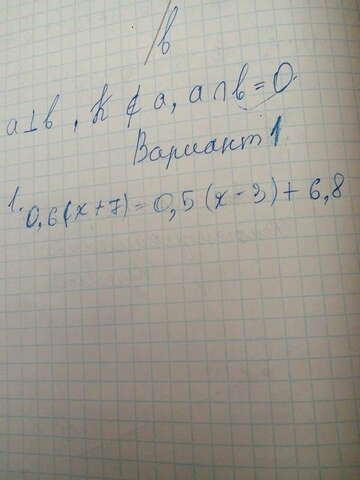 b
a⊥b, K ∉ a, a∩b=O.
Вариант 1
1. 0,6(x+7)=0,5(x-3)+6,8